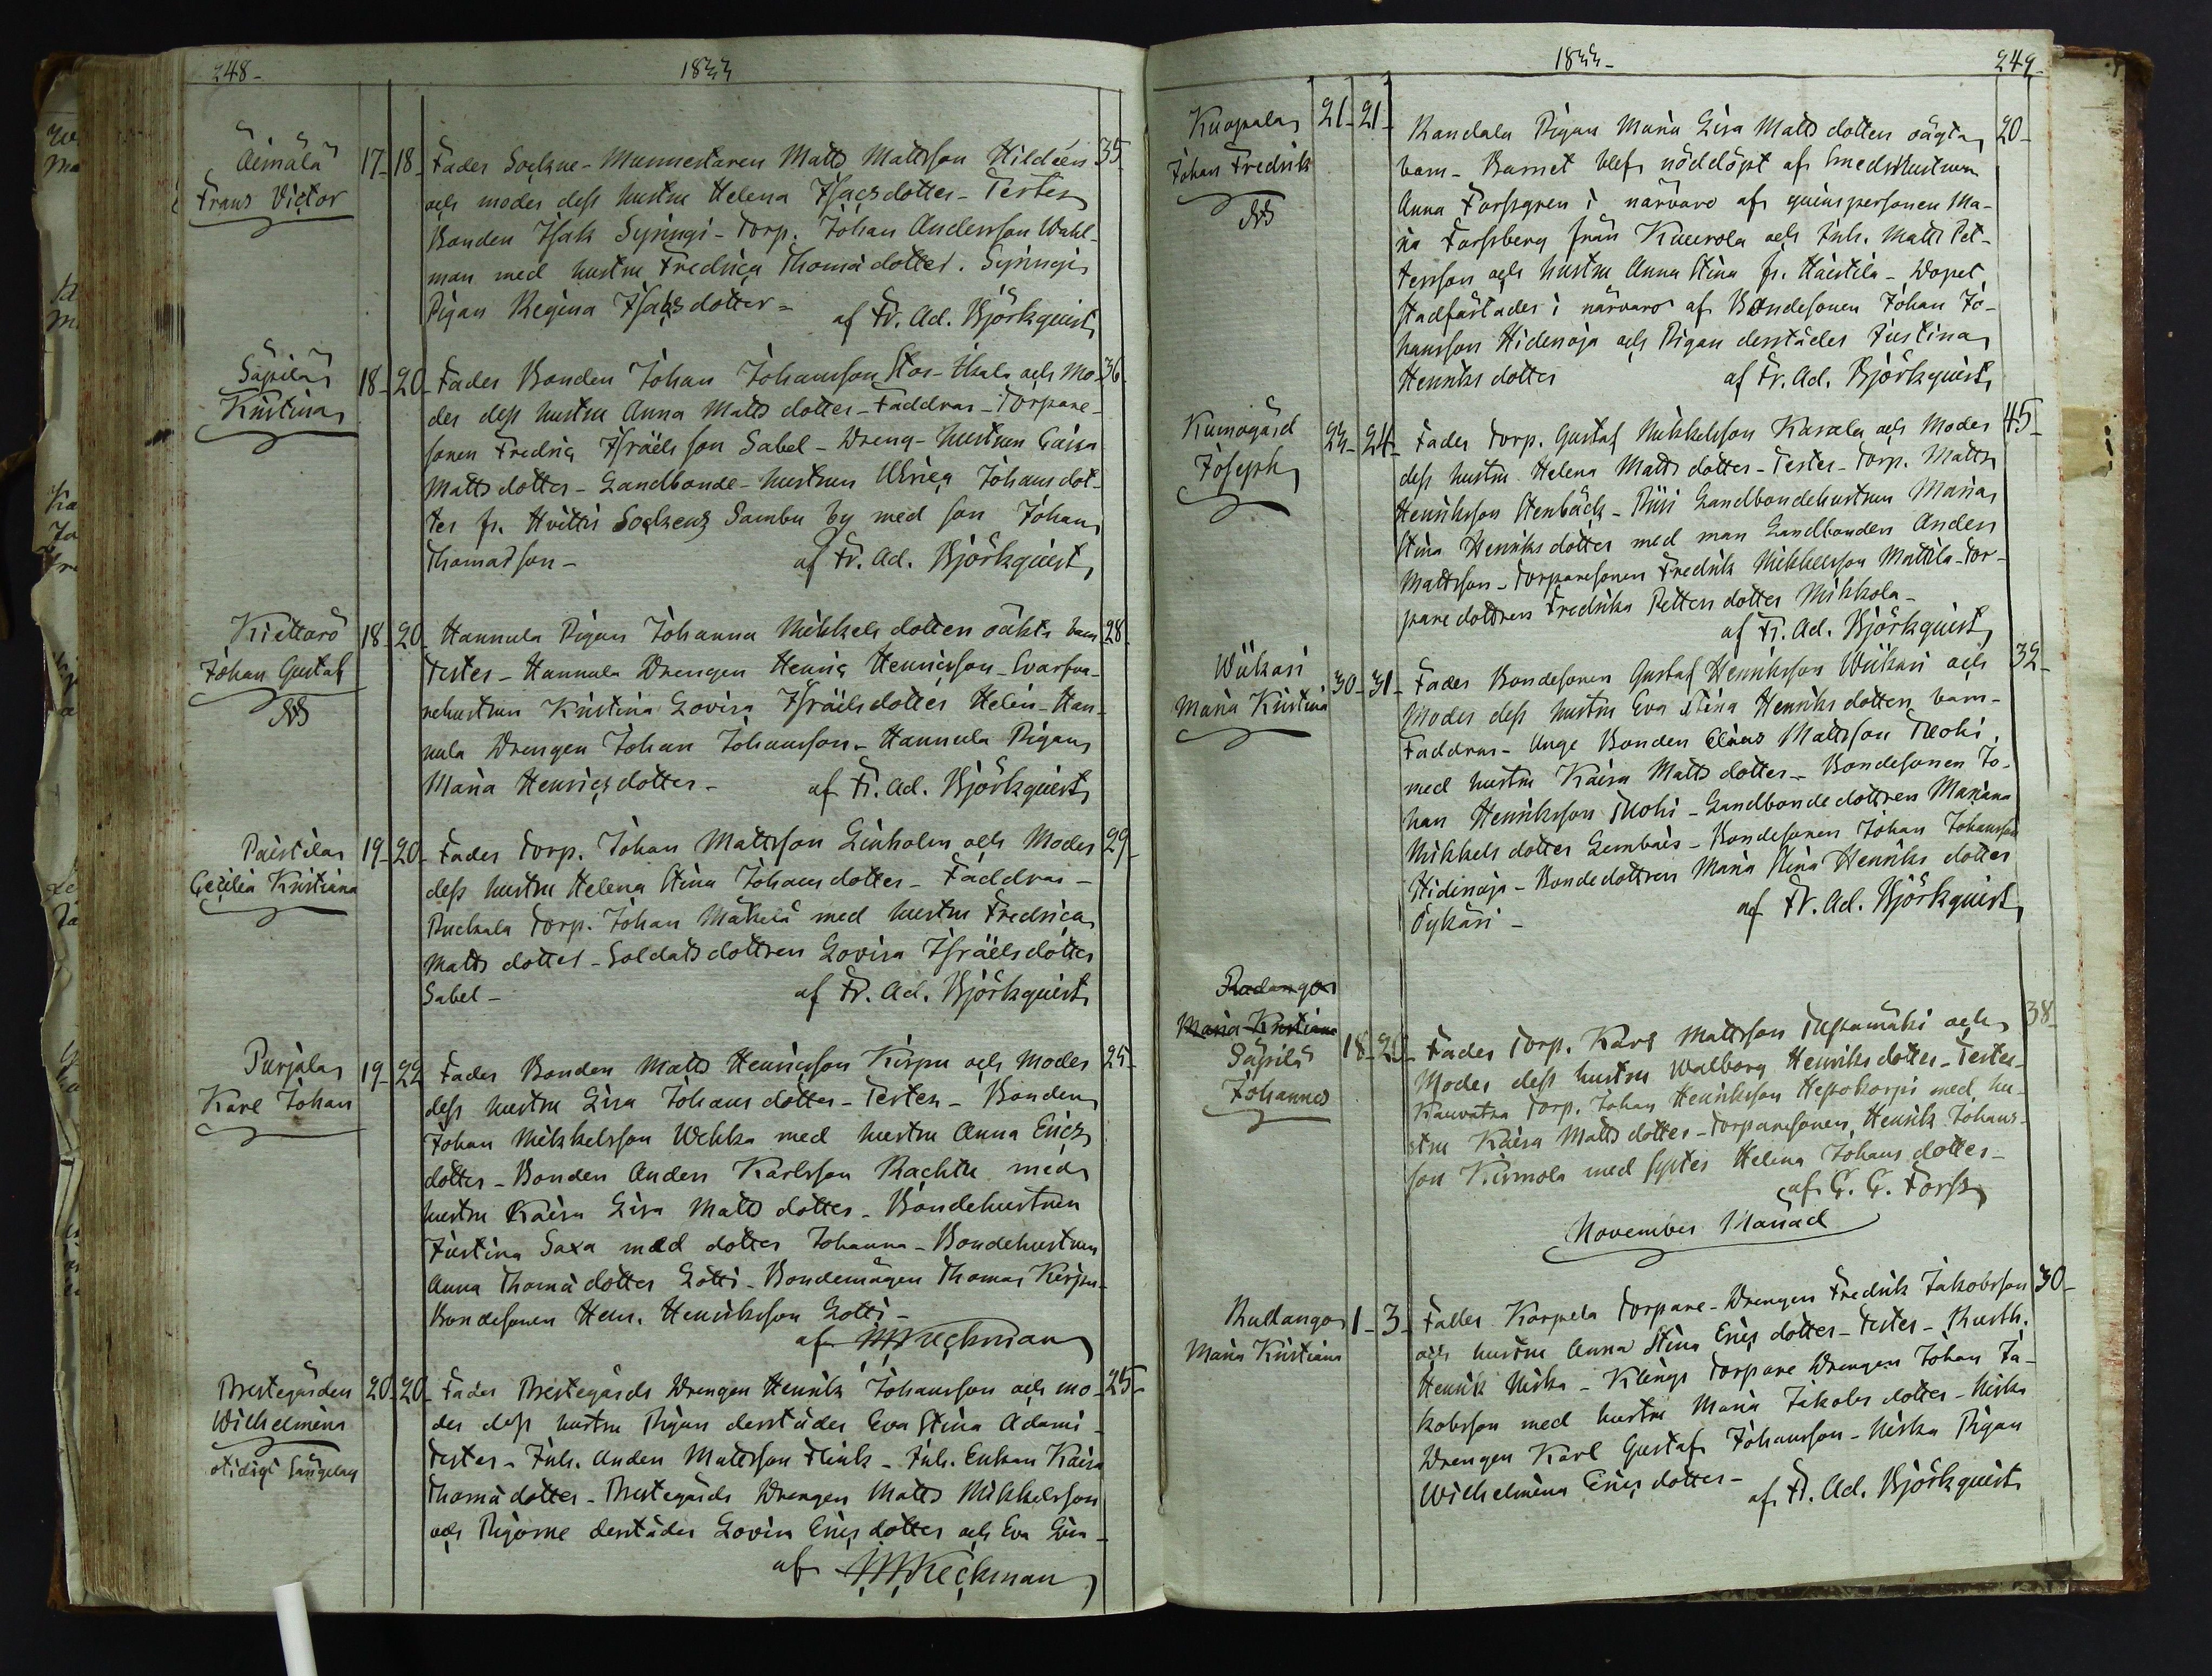 248-
1844
Äimälä
Frans Victor
17-18-
Fader Sockne-Murmestaren Matts Mattsson Hildeen
35
och moder dess hustru Helena Isacsdotter - Testes
Bonden Isak Syningi - Torp. Johan Andersson Wahl-
man med hustru Fredrica Thomädotter. Syningi
Pigan Regina Isaksdotter =
af Fr. Ad. Björkquist
Säpilä
Kristina
18-20-
Fader Bonden Johan Johansson Stor-Ukala och Mo-
36
der dess hustru Anna Matts dotter - Faddrar - Torpare-
sonen Fredric Israëls son Sabel - Dreng-hustrun Caisa
Matts dotter - Landbonde-hustrun Ulrica Johans dot-
ter fr. Hvittis Sockens Sambu by med son Johan
Thomasson -
af Fr. Ad. Björkquist
Kiettarö
Johan Gustaf
18-20-
Hannula Pigan Johanna Mikkels dotters oäkta barn
28-
Testes - Hannula Drengen Henric Henricsson - Svarfva-
rehustrun Kristina Lovisa Israëlsdotter Helin - Han-
nula Drengen Johan Johansson - Hannula Pigan
Maria Henricsdotter -
af Fr. Ad. Björkquist
Paistila
Cecilia Kristiana
19-20-
Fader Torp. Johan Mattsson Linholm och Moder
29-
dess hustru Helena Stina Johans dotter - Faddrar -
Torp. Johan Mäkelä med hustru Fredrica
Matts dotter - Soldatsdottren Lovisa Israëlsdotter
Sabel -
af Fr. Ad. Björkquist
Purjala
Karl Johan
19-22
Fader Bonden Matts Henricsson Kirpu och Moder
25-
dess hustru Lisa Johans dotter - Testes - Bonden
Johan Mikkelsson Uhkka med hustru Anna Erics
dotter - Bonden Anders Karlsson Rachtu med
hustru Kaisa Lisa Matts dotter - Bondehustrun
Justina Saxa med dotter Johanna - Bondehustrun
Anna Thomä dotter Lötti - Bondemågen Thomas Kirpu -
Bondesonen Henr. Henriksson Lotti -
af Keckman
Prestegården
Wilhelmina
20-20-
Fader Prestegårds Drengen Henrik Johansson och mo-
25-
der dess hustru Pigan derstädes Eva Stina Adami -
Testes - Inh. Anders Mattsson Flink - Inh. Enkan Kaisa
Thomä dotter - Prestegårds Drengen Matts Mikkelsson
och Pigorne derstädes Lovisa Erics dotter och Eva
af Keckman
1844-
249-
Kuopala
Johan Fredrik
21-21-
Randala Pigan Maria Lisa Matts dotters oägta
20-
barn - Barnet blef nöddöpt af Smedshustrun
Anna Forssgren i närvaro af quinspersonen Ma-
ria Forssberg från Kuurola och Inh. Matts Pet-
tersson och hustru Anna Stina fr. Haistila - Dopet
stadfästades i närvaro af Bondesonen Johan Jo-
hansson Hidenoja och Pigan derstädes Justina
Henriks dotter
af Fr. Ad. Björkquist
Kumogård
Joseph
24-
Fader Torp. Gustaf Mikkelsson Karala och Moder
45-
dess hustru Helena Matts dotter - Testes - Torp. Matts
Henriksson Stenbäck - Piiri Landbondehustrun Maria
Stina Henriks dotter med man Landbonden Anders
Mattsson - Torparesonen Fredrik Mikkelsson Mattila - Tor-
pare dottren Fredrika Petters dotter Mikkola -
af Fr. Ad. Björkquist
Wiikari
Maria Kristina
30-31-
Fader Bondesonen Gustaf Henriksson Wiikari och
32-
Moder dess hustru Eva Stina Henriks dotters barn -
Faddrar - Unge Bonden Elias Mattsson Tuohi
med hustru Kaisa Matts dotter - Bondesonen Jo-
han Henriksson Tuohi - Landbonde dottren Mariana
Mikkels dotter Lembois - Bondesonen Johan Johansson
Hidinoja - Bondedottren Maria Stina Henriks dotter
Pykäri -
af Fr. Ad. Björkquist
Radango
Maria Kristiana
Säpilä
Johannes
18-
Fader Torp. Karl Mattsson och
38-
Moder dess hustru Walborg Henriks dotter - Testes -
Kauvatsa Torp. Johan Henriksson Hepokorpi med hu-
stru Kaisa Matts dotter - Torparesonen Henrik Johans-
son Kirmola med syster Helena Johans dotter -
af G. G. Forss
November Månad
Ruttango
Maria Kristiana
1-3-
Fader Karpela Torpare-Drengen Fredrik Jakobsson
30-
och hustru Anna Stina Erics dotter - Testes - Rusth.
Henrik Niska - Klings Torpare Drengen Johan Ja-
kobsson med hustru Maria Jakobs dotter - Niska
Drengen Karl Gustaf Johansson - Niska Pigan
Wilhelmina Erics dotter -
af Fr. Ad. Björkquist